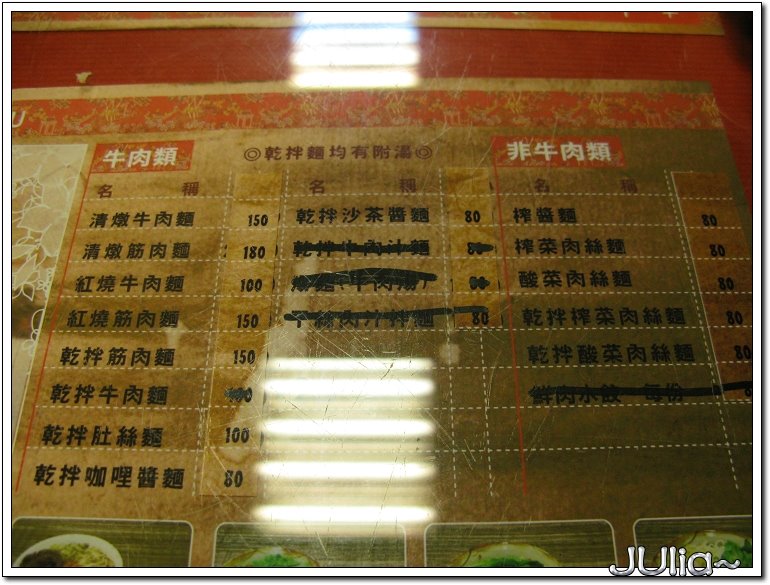 U
牛肉類
◎乾拌麵均有附湯◎
非牛肉類
名 稱
清燉牛肉麵 150
清燉筋肉麵 180
紅燒牛肉麵 100
紅燒筋肉麵 150
乾拌筋肉麵 150
乾拌牛肉麵
乾拌肚絲麵 100
乾拌咖哩醬麵 80
名 稱
乾拌沙茶醬麵 80
乾拌牛肉汁麵 80
80
肉汁拌麵 80
名 稱
榨醬麵 80
榨菜肉絲麵 80
酸菜肉絲麵 80
乾拌榨菜肉絲麵 80
乾拌酸菜肉絲麵 80
鮮肉水餃 每份
JUlia~